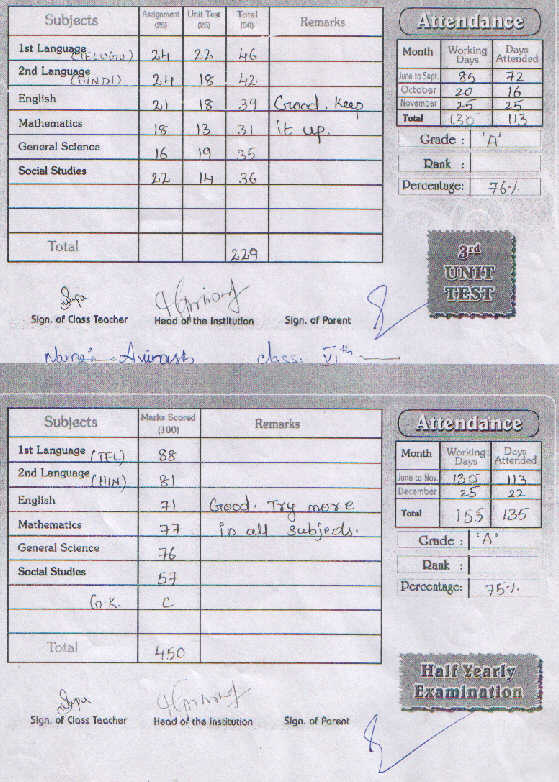 Subjects Assignment (25) Unit Test (25) Total (50) Remarks
1st Language (TELUGU) 24 22 46
2nd Language (HINDI) 24 18 42
English 21 18 39 Good. Keep
Mathematics 18 13 31 it up.
General Science 16 19 35
Social Studies 22 14 36
Total 229
Attendance
Month Working Days Days Attended
June to Sept. 85 72
October 20 16
November 25 25
Total 130 113
Grade : 'A'
Rank :
Percentage: 76%
3rd
UNIT
TEST
Sign. of Class Teacher Head of the Institution Sign. of Parent
Class. VIth
Subjects Marks Scored (100) Remarks
1st Language (TEL) 88
2nd Language (HIN) 81
English 71 Good. Try more
Mathematics 77 in all subjects.
General Science 76
Social Studies 57
G.K. C
Total 450
Attendance
Month Working Days Days Attended
June to Nov. 130 113
December 25 22
Total 155 135
Grade : 'A'
Rank :
Percentage: 75%
Half Yearly
Examination
Sign. of Class Teacher Head of the Institution Sign. of Parent